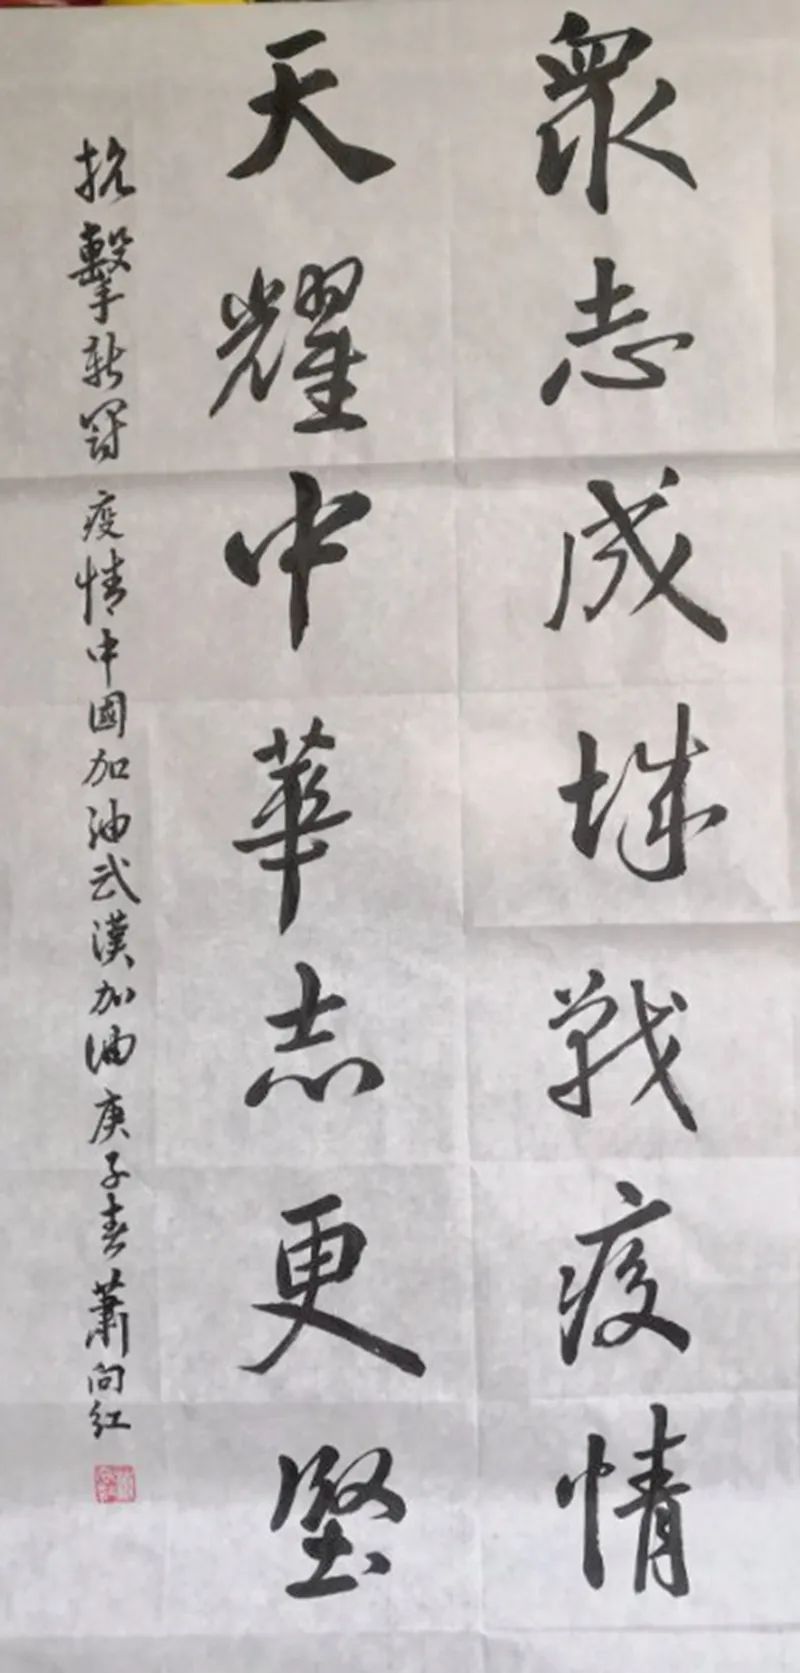 眾志成城戰疫情
天耀中華志更堅
抗擊新冠疫情中國加油武漢加油庚子春蕭向红